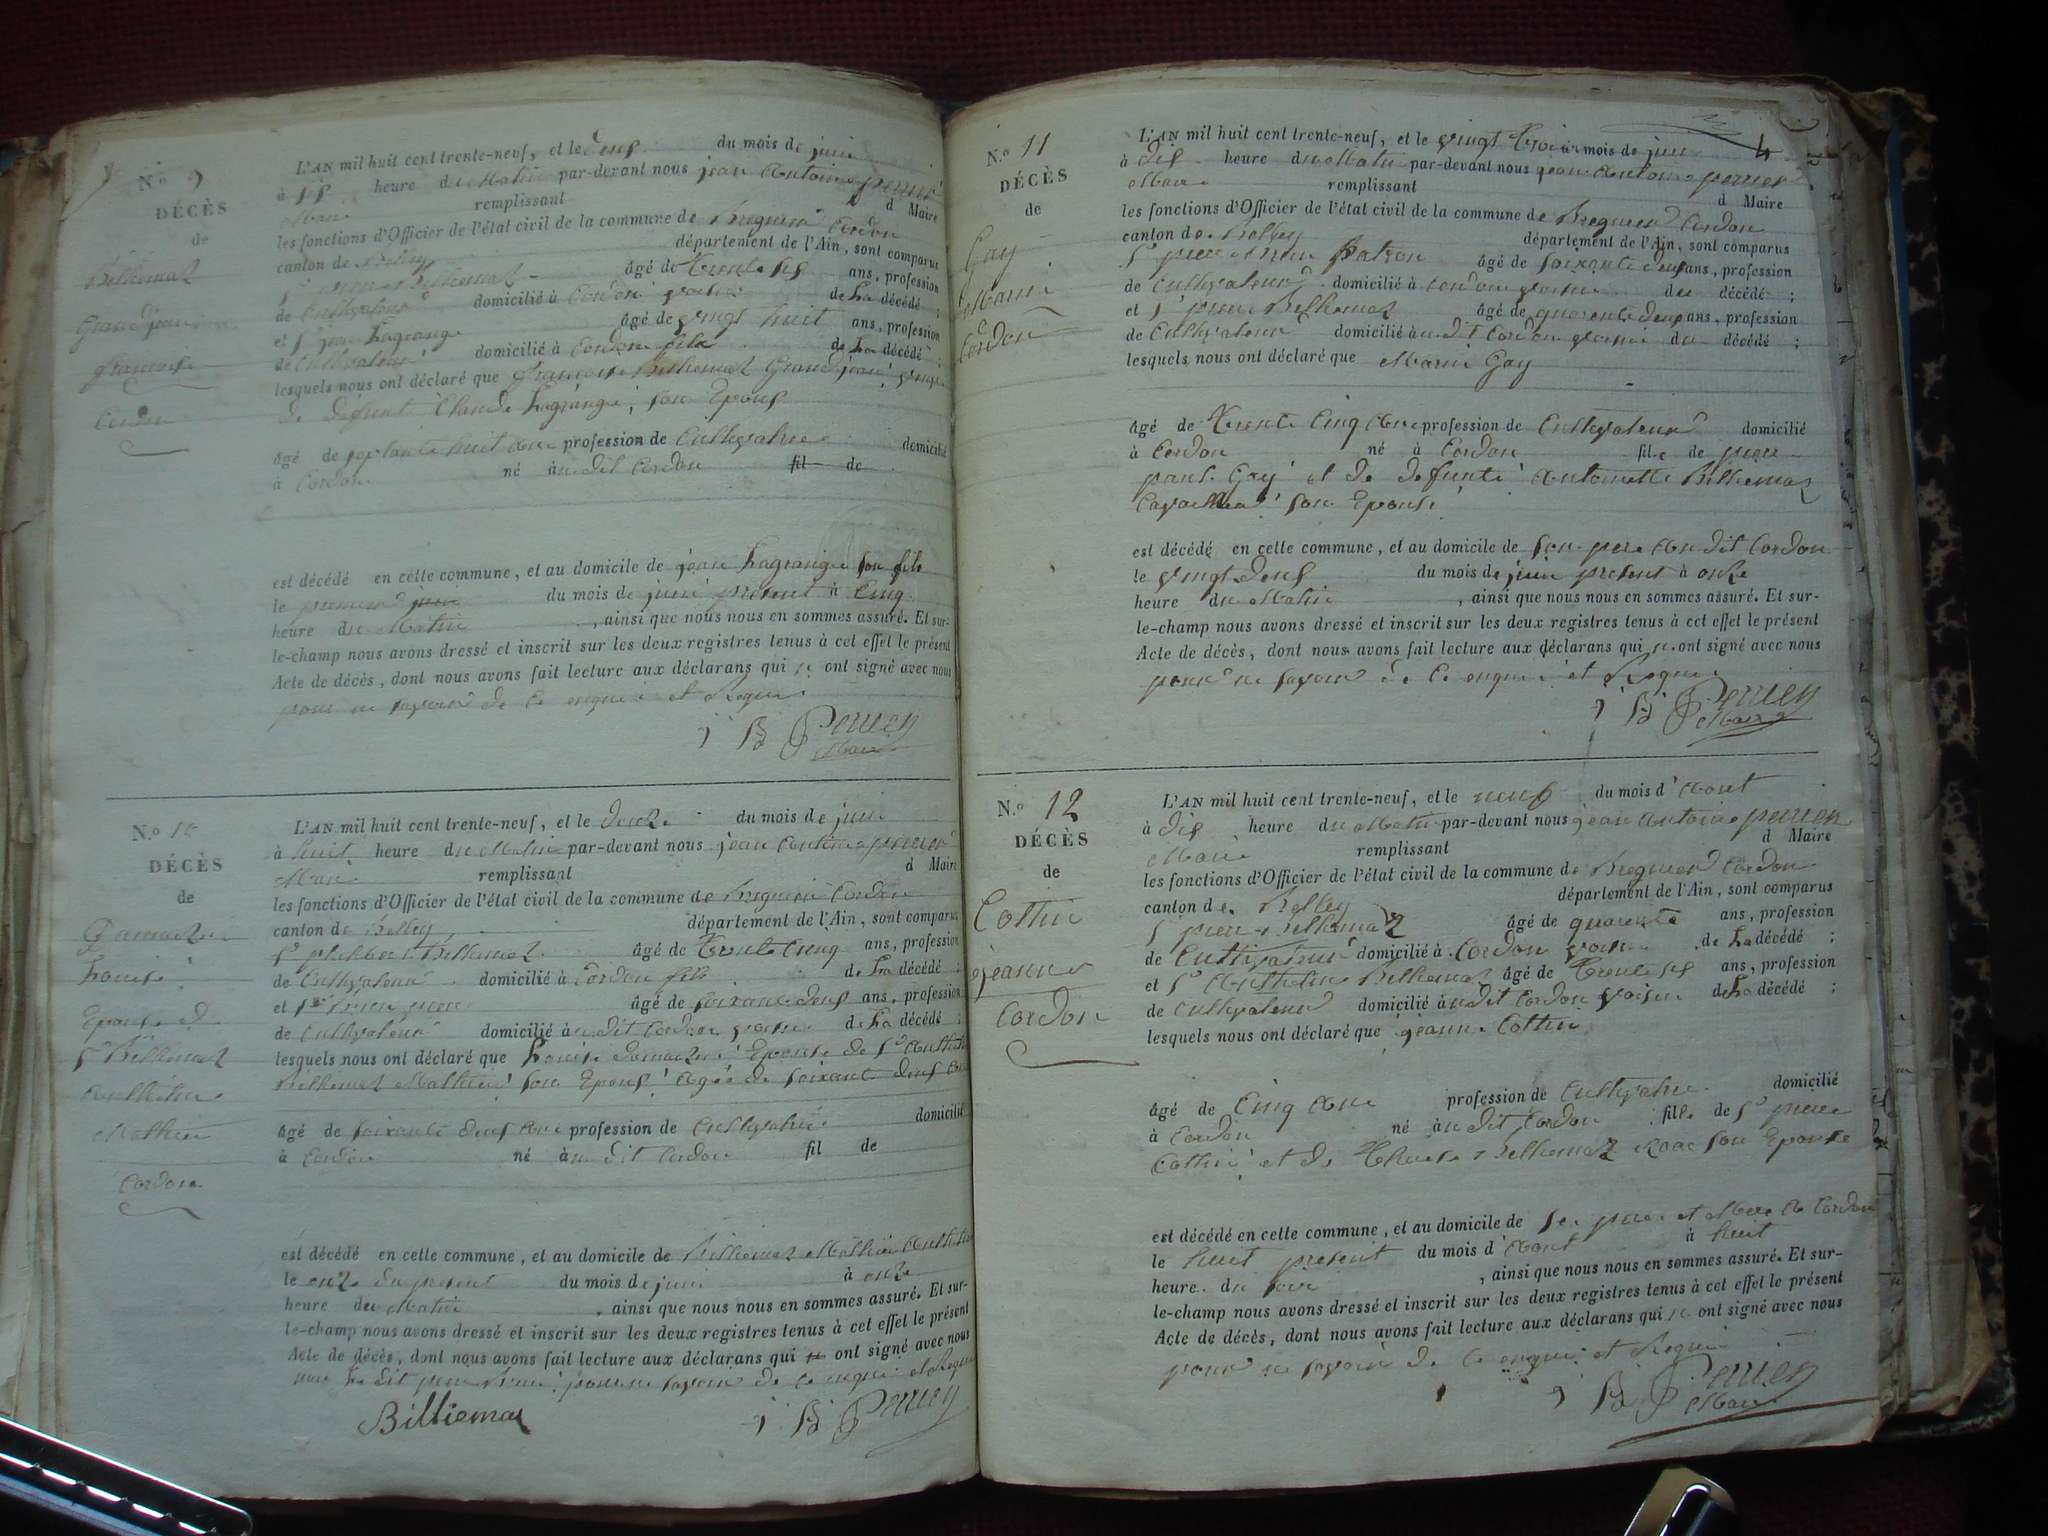 N.o 9
DÉCÈS
de
Billiemaz
Grandjean
françoise
Cordon
L'AN mil huit cent trente-neuf, et le deux du mois de juin
à six heure du Matin par-devant nous jean Antoine perrier
Maire remplissant d Maire
les fonctions d'Officier de l'état civil de la commune de Bregnier Cordon
canton de Belley département de l'Ain, sont comparus
Sr pierre Billiemaz âgé de trente six ans, profession
de Cultivateur domicilié à Cordon voisin de La décédé ;
et Sr jean Lagrange âgé de vingt huit ans, profession
de Cultivateur domicilié à Cordon fils de La décédé ;
lesquels nous ont déclaré que françoise Billiemaz Grandjean
de défunt Claude Lagrange, son Epoux
âgé de septante huit Ans profession de Cultivatrice domicilié
à Cordon né à udit Cordon fil de
est décédé en cette commune, et au domicile de jean Lagrange son fils
le premier du mois de juin présent à Cinq
heure du Matin , ainsi que nous nous en sommes assuré. Et sur-
le-champ nous avons dressé et inscrit sur les deux registres tenus à cet effet le présent
Acte de décès, dont nous avons fait lecture aux déclarans qui n' ont signé avec nous
pour ne savoir de ce enquis et Requis
j B Perrier
Maire
N.o 10
DÉCÈS
de
Louise
Epouse de
Sr Billiemaz
Anthelme
Mathieu
Cordon
L'AN mil huit cent trente-neuf, et le douze du mois de juin
à huit heure du Matin par-devant nous jean Antoine perrier
Maire remplissant d Maire
les fonctions d'Officier de l'état civil de la commune de Bregnier Cordon
canton de Belley département de l'Ain, sont comparus
Sr philibert Billiemaz âgé de trente Cinq ans, profession
de Cultivateur domicilié à Cordon fils de La décédé ;
et Sr pierre âgé de soixante deux ans, profession
de Cultivateur domicilié à udit Cordon voisin de La décédé ;
lesquels nous ont déclaré que Louise Epouse de Sr Anthelme
Billiemaz Mathieu son Epoux Agée de soixante deux Ans
âgé de soixante deux Ans profession de Cultivatrice domicilié
à Cordon né à u dit Cordon fil de
est décédé en cette commune, et au domicile de Billiemaz Mathieu Anthelme
le onze du présent du mois de juin à onze
heure du Matin , ainsi que nous nous en sommes assuré. Et sur-
le-champ nous avons dressé et inscrit sur les deux registres tenus à cet effet le présent
Acte de décès, dont nous avons fait lecture aux déclarans qui ont signé avec nous
non Le dit pour ne savoir de ce enquis et Requis
Billiemaz j B Perrier
N.o 11
DÉCÈS
de
Gay
Marie
Cordon
4
L'AN mil huit cent trente-neuf, et le vingt trois du mois de juin
à dix heure du Matin par-devant nous jean Antoine perrier
Maire remplissant d Maire
les fonctions d'Officier de l'état civil de la commune de Bregnier Cordon
canton de Belley département de l'Ain, sont comparus
Sr pierre Patron âgé de soixante deux ans, profession
de Cultivateur domicilié à Cordon voisin du décédé ;
et Sr pierre Billiemaz âgé de quarente deux ans, profession
de Cultivateur domicilié à udit Cordon voisin du décédé ;
lesquels nous ont déclaré que Marie Gay
âgé de trente Cinq Ans profession de Cultivateur domicilié
à Cordon né à Cordon file de pierre
paul Gay et de defunte Antoinette Billiemaz
son Epouse
est décédé en cette commune, et au domicile de son pere Au dit Cordon
le vingt deux du mois de juin présent à onze
heure du Matin , ainsi que nous nous en sommes assuré. Et sur-
le-champ nous avons dressé et inscrit sur les deux registres tenus à cet effet le présent
Acte de décès, dont nous avons fait lecture aux déclarans qui n' ont signé avec nous
pour ne savoir de ce enquis et Requis
j B Perrier
Maire
N.o 12
DÉCÈS
de
Cottin
jeanne
Cordon
L'AN mil huit cent trente-neuf, et le neuf du mois d' Aout
à dix heure du Matin par-devant nous jean Antoine perrier
Maire remplissant d Maire
les fonctions d'Officier de l'état civil de la commune de Bregnier Cordon
canton de Belley département de l'Ain, sont comparus
Sr pierre Billiemaz âgé de quarente ans, profession
de Cultivateur domicilié à Cordon voisin de La décédé ;
et Sr Anthelme Billiemaz âgé de trente six ans, profession
de Cultivateur domicilié à udit Cordon voisin de La décédé ;
lesquels nous ont déclaré que jeanne Cottin
âgé de Cinq Ans profession de Cultivatrice domicilié
à Cordon né à udit Cordon fille de Sr pierre
Cottin et de Billiemaz son Epouse
est décédé en cette commune, et au domicile de Ses pere et Mere à Cordon
le huit présent du mois d' Aout à huit
heure du soir , ainsi que nous nous en sommes assuré. Et sur-
le-champ nous avons dressé et inscrit sur les deux registres tenus à cet effet le présent
Acte de décès, dont nous avons fait lecture aux déclarans qui n' ont signé avec nous
pour ne savoir de ce enquis et Requis
j B Perrier
Maire